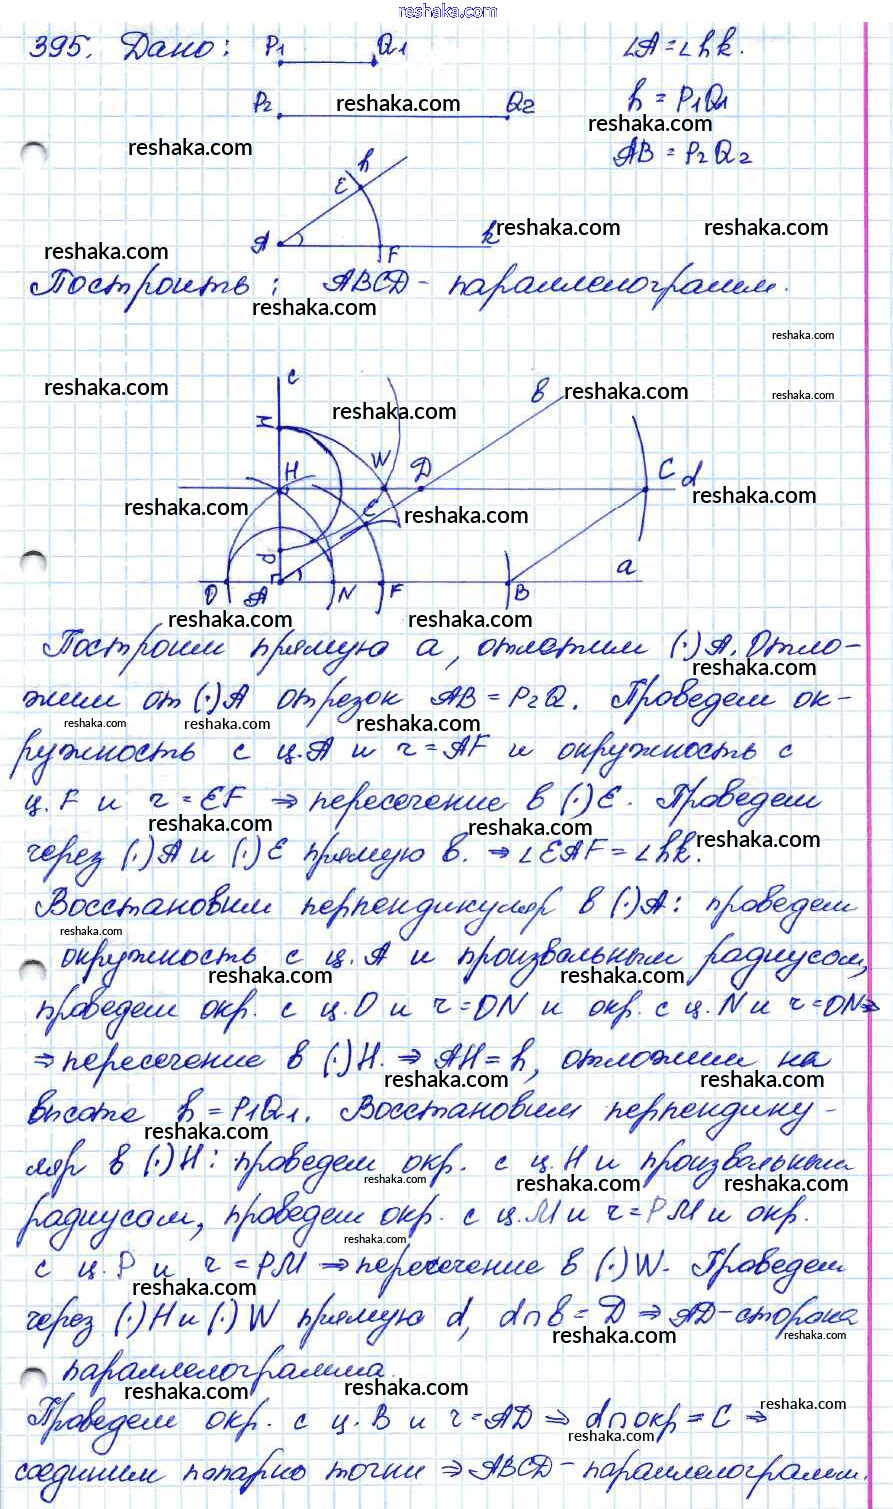 reshaka.com
395. Дано: P₁ Q₁ ∠A = ∠hk.
P₂ reshaka.com Q₂ h = P₁Q₁
reshaka.com
reshaka.com AB = P₂Q₂
h
E
A F k reshaka.com reshaka.com
reshaka.com
Построить: ABCD - параллелограмм.
reshaka.com
reshaka.com
reshaka.com c b reshaka.com reshaka.com
reshaka.com
M
H W D C d
reshaka.com reshaka.com
E reshaka.com
P a
O A N F B
reshaka.com reshaka.com
Построим прямую a, отметим (·)A. Отло-
reshaka.com
жим от (·)A отрезок AB = P₂Q. Проведем ок-
reshaka.com reshaka.com reshaka.com
ружность с ц.A и r = AF и окружность с
ц.F и r = EF ⇒ пересечение в (·)E. Проведем
reshaka.com reshaka.com
через (·)A и (·)E прямую b. ⇒ ∠EAF = ∠hk.
reshaka.com
Восстановим перпендикуляр в (·)A: проведем
reshaka.com
окружность с ц.A и произвольным радиусом,
reshaka.com reshaka.com
проведем окр. с ц.O и r = ON и окр. с ц.N и r = ON ⇒
⇒ пересечение в (·)H. ⇒ AH = h, отложим на
reshaka.com reshaka.com
высоте h = P₁Q₁. Восстановим перпендику-
reshaka.com
ляр в (·)H: проведем окр. с ц.H и произвольным
reshaka.com reshaka.com reshaka.com
радиусом, проведем окр. с ц.M и r = PM и окр.
reshaka.com
с ц.P и r = PM ⇒ пересечение в (·)W. Проведем
reshaka.com
через (·)H и (·)W прямую d, d∩b = D ⇒ AD - сторона
reshaka.com reshaka.com
параллелограмма.
reshaka.com reshaka.com
Проведем окр. с ц.B и r = AD ⇒ d∩окр = C ⇒
reshaka.com
reshaka.com
соединим попарно точки ⇒ ABCD - параллелограмм.